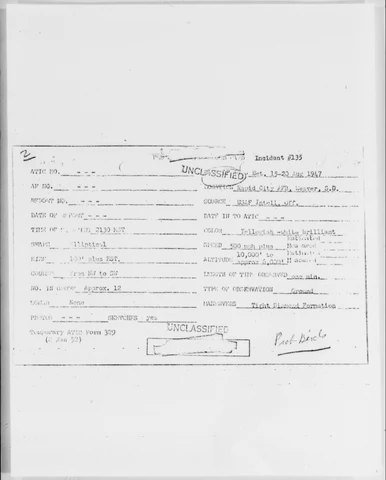 2
UNCLASSIFIED
Incident #135
ATIC NO. - - -
Bet. 15-20 Aug 1947
AF NO. - - -
LOCATION Rapid City AFB, Weaver, S.D.
REPORT NO. - - -
SOURCE Intell. Off.
DATE OF REPORT - - -
DATE IN TO ATIC - - -
TIME OF 2130 MST
COLOR Yellowish-white brilliant
SHAPE Eliptical
SPEED 300 mph plus
SIZE plus EST.
ALTITUDE 10,000' to approx 6,000'
COURSE from NW to SW
LENGTH OF TIME OBSERVED one min.
NO. IN GROUP Approx. 12
TYPE OF OBSERVATION Ground
SOUND None
MANEUVERS Tight Diamond Formation
PHOTOS - - - SKETCHES yes
Temporary ATIC Form 329
(2 Jan 52)
UNCLASSIFIED